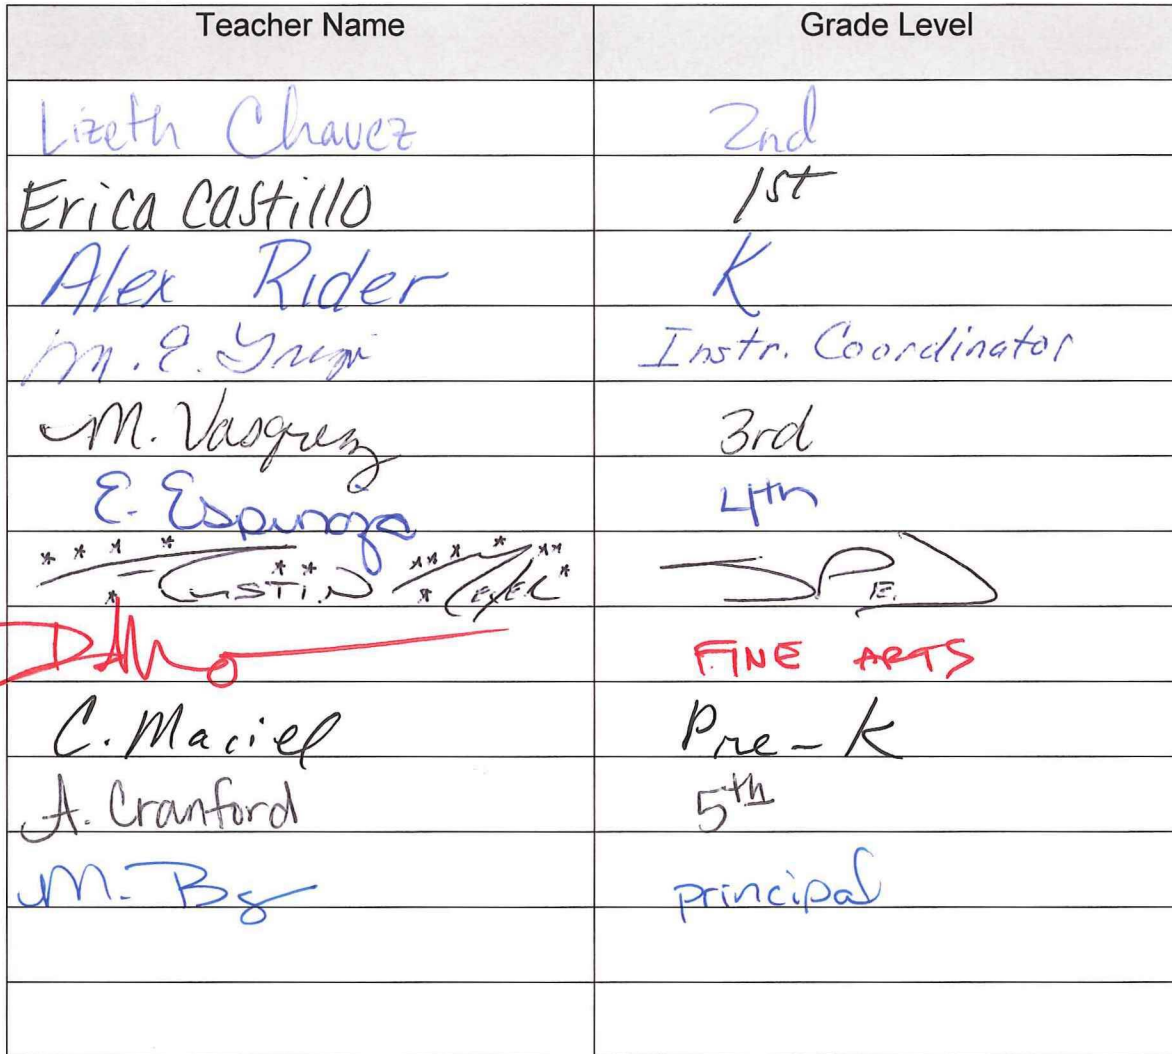 Teacher Name Grade Level
Lizeth Chavez 2nd
Erica Castillo 1st
Alex Rider K
M. E. Instr. Coordinator
M. Vasquez 3rd
E. Espinoza 4th
P.E.
FINE ARTS
C. Maciel Pre-K
A. Cranford 5th
M. principal